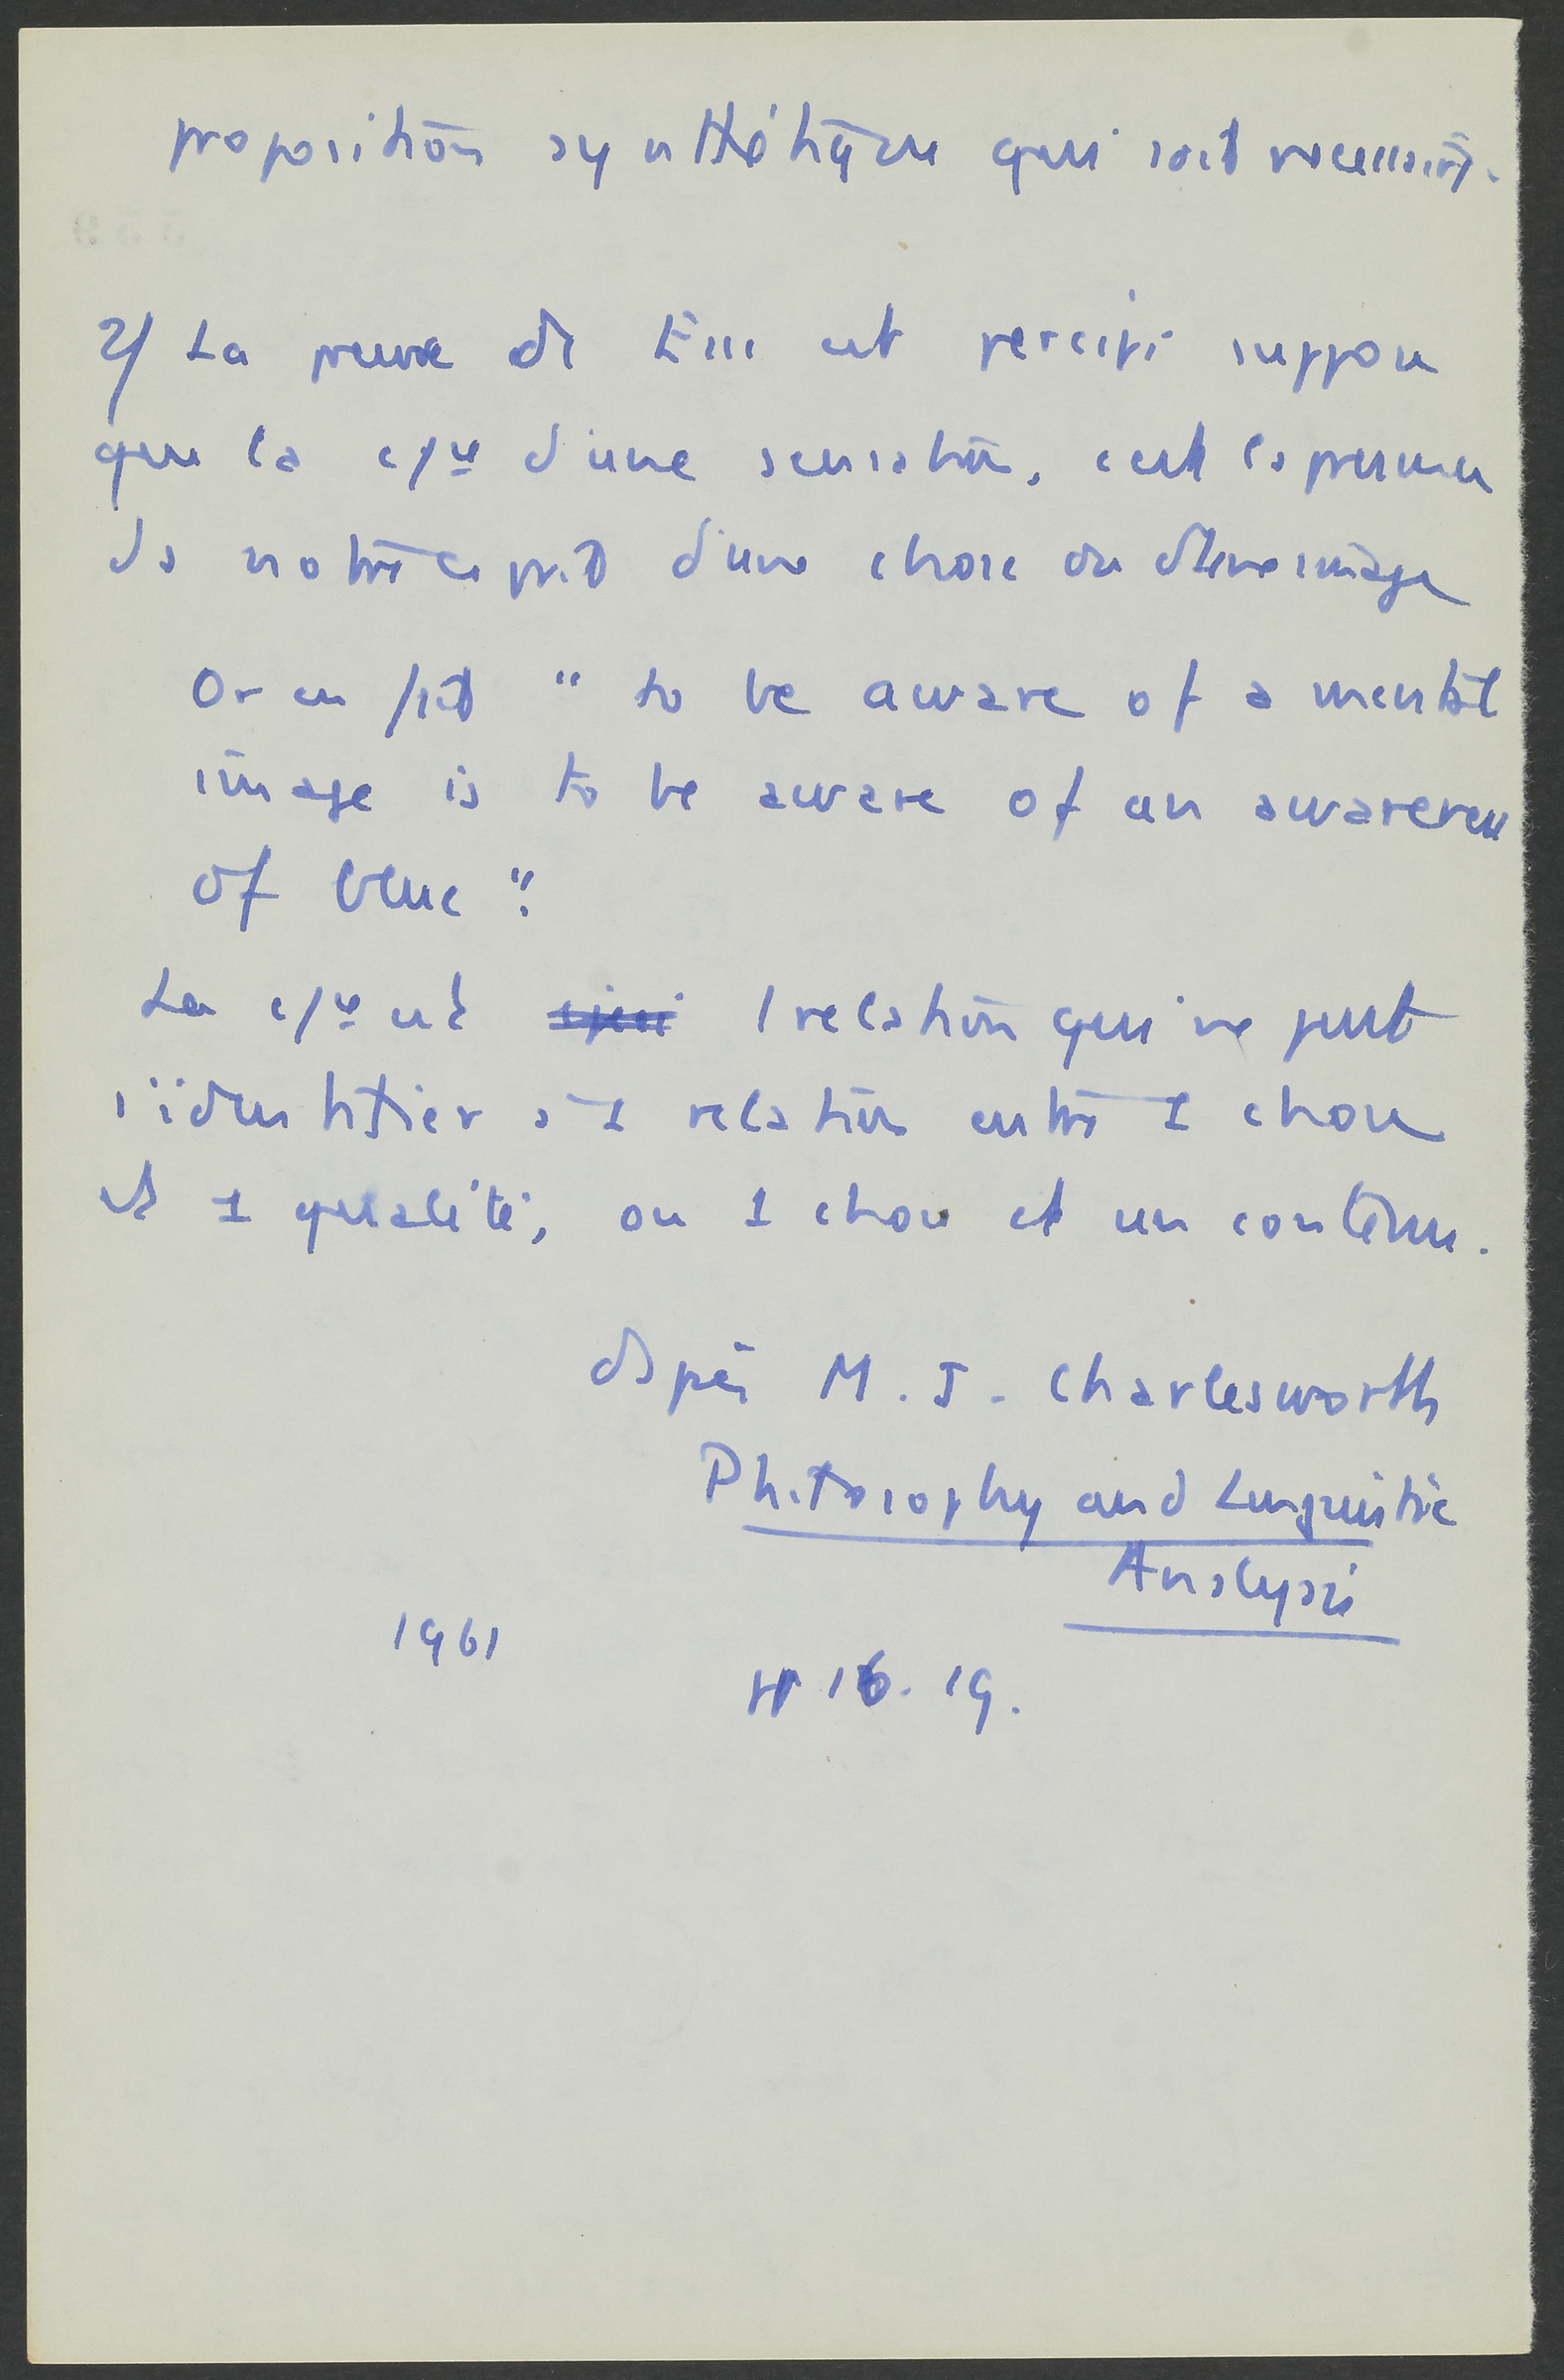 proposition synthétique qui soit nécessaire.
2/ La preuve de Esse est percipi suppose
que la c/ce d'une sensation, c'est la présence
ds notre esprit d'une chose ou d'une image
Or en fait " to be aware of a mental
image is to be aware of an awareness
of blue ".
La c/ce est 1 relation qui ne peut
s'identifier à 1 relation entre 1 chose
et 1 qualité, ou 1 chose et un contenu.
d'après M. J. Charlesworth
Philosophy and Linguistic
Analysis
1961
pp 16. 19.